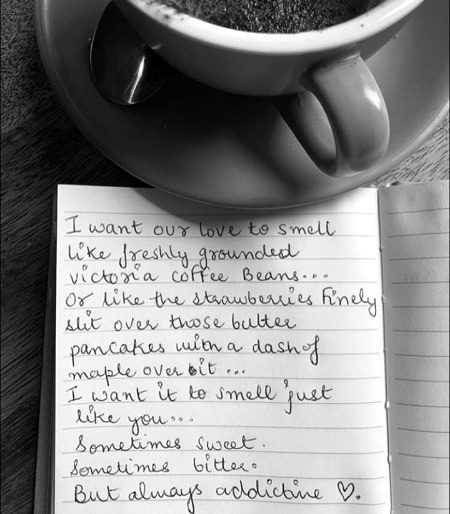 I want our love to smell
like freshly grounded
victoria coffee Beans...
Or like the strawberries Finely
slit over those butter
pancakes with a dash of
maple over it ...
I want it to smell just
like you...
Sometimes sweet.
Sometimes bitter.
But always addictive ♡.